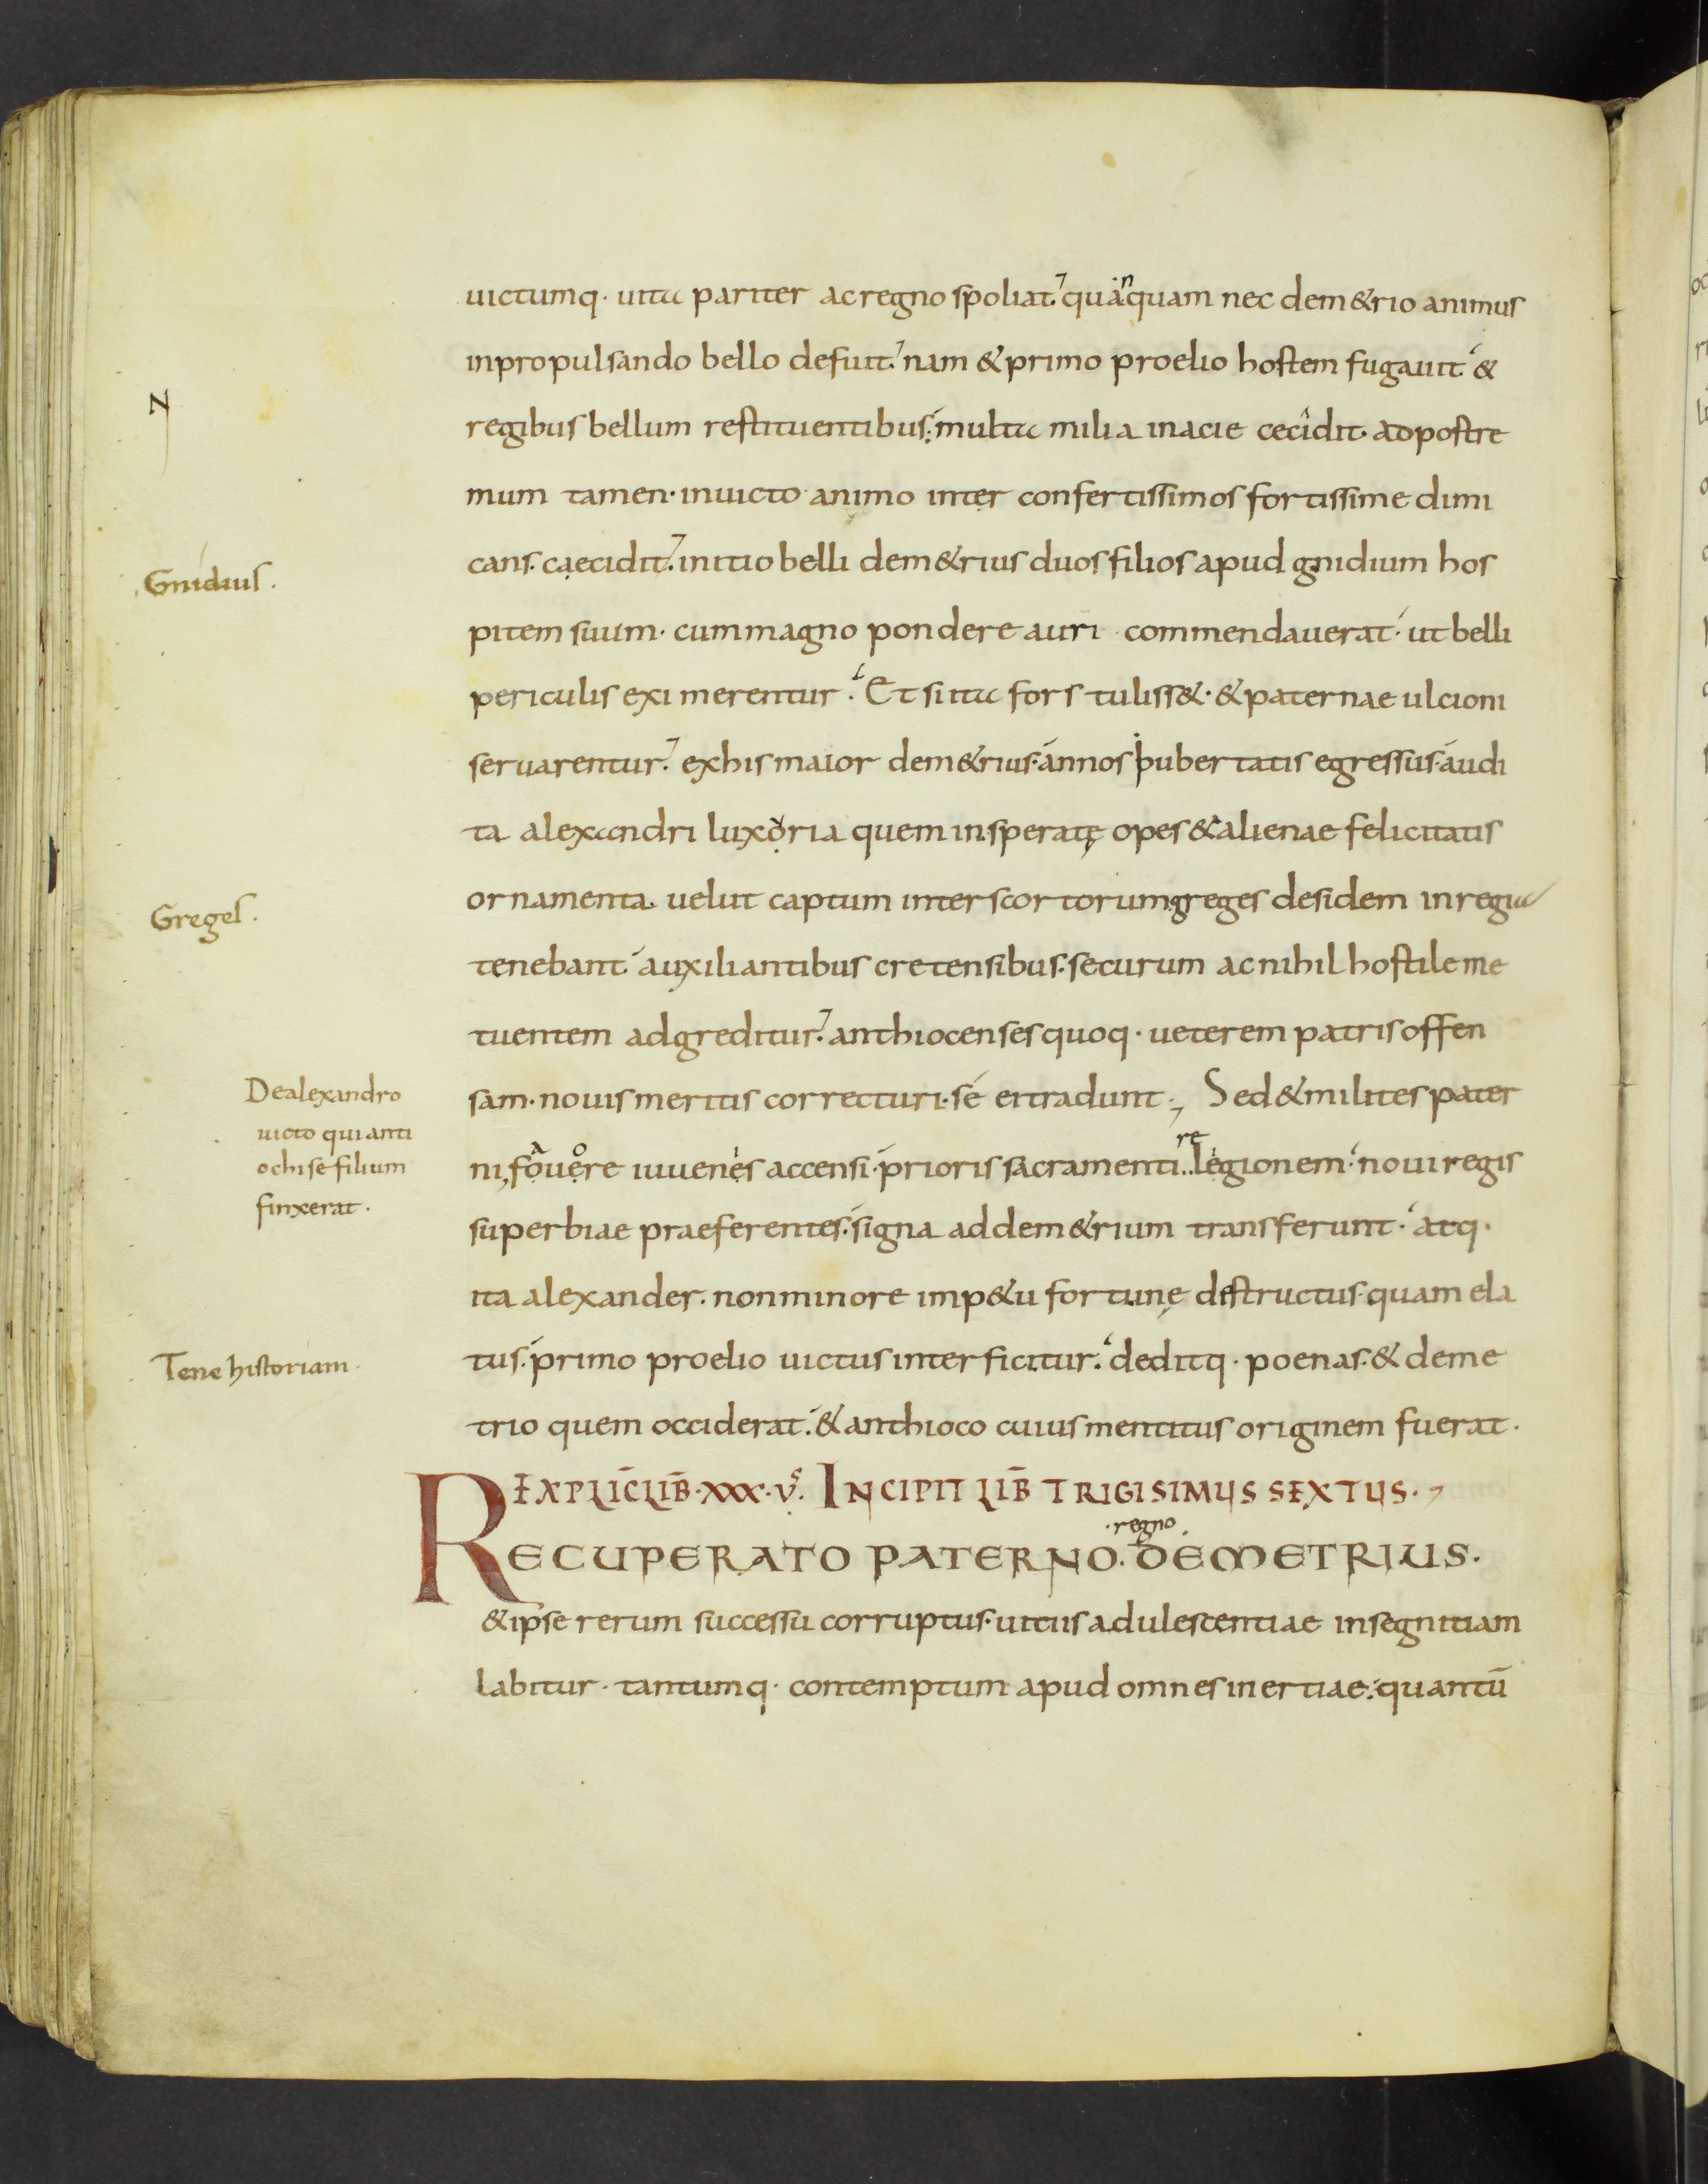 uictumq· uita pariter ac regno spoliat. quanquam nec dem&rio animus
in propulsando bello defuit. nam & primo proelio hostem fugauit. &
regibus bellum restituentibus. multa milia in acie cecidit. ad postre
mum tamen· inuicto animo inter confertissimos fortissime dimi
Gnidius.
cans. caecidit. initio belli dem&rius duos filios apud gnidium hos
pitem suum· cum magno pondere auri commendauerat· ut belli
periculis eximerentur. Et si ita fors tuliss&· & paternae ulcioni
seruarentur. ex his maior dem&rius· annos pubertatis egressus· audi
ta alexandri luxoria quem insperatę opes & alienae felicitatis
Greges.
ornamenta uelut captum inter scortorum greges desidem in regia
tenebant. auxiliantibus cretensibus· securum ac nihil hostile me
tuentem adgreditur. anthiocenses quoq· ueterem patris offen
De alexandro
uicto qui anti
ochi se filium
finxerat.
sam· nouis meritis correcturi· se ei tradunt; Sed & milites pater
ni, fouere iuuenes accensi· prioris sacramenti relegionem· noui regis
superbiae praeferentes. signa ad dem&rium transferunt. atq·
ita alexander. non minore imp&u fortunę destructus· quam ela
Tene historiam.
tus. primo proelio uictus interficitur. deditq· poenas. & deme
trio quem occiderat. & anthioco cuius mentitus originem fuerat.
EXPLIC̄ LIB̄· XXX·V. INCIPIT LIB̄ TRIGISIMUS SEXTUS.
·regno.
RECUPERATO PATERNO. DEMETRIUS.
& ipse rerum successu corruptus· uitiis adulescentiae in segnitiam
labitur· tantumq· contemptum apud omnes inertiae. quantū